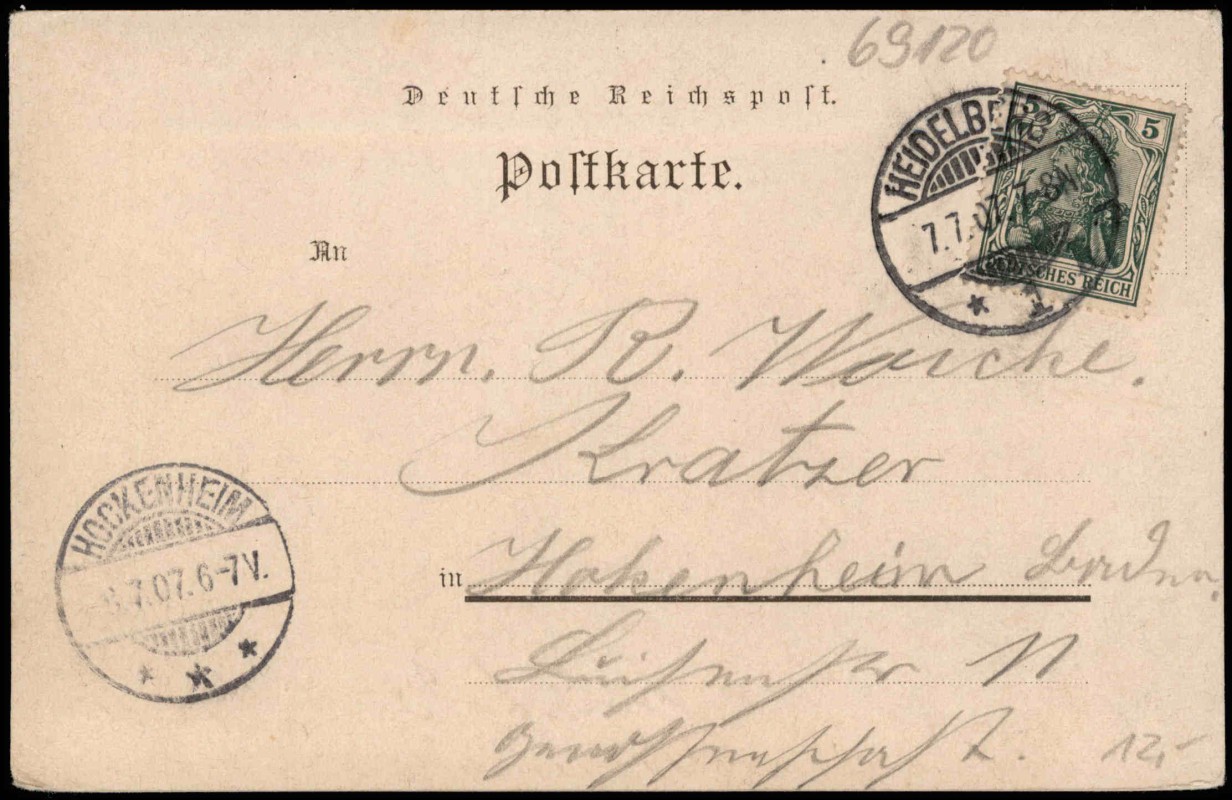 69120
Deutsche Reichspost.
Postkarte.
HEIDELBERG
7.7.07. 7-8N
* 1.
5 5
DEUTSCHES REICH
An
Herrn. R. Woiche.
Kratzer
in Hokenheim Baden.
Luisenstr 11
Genossenschaft.
HOCKENHEIM
8.7.07. 6-7V.
* * *
12,-